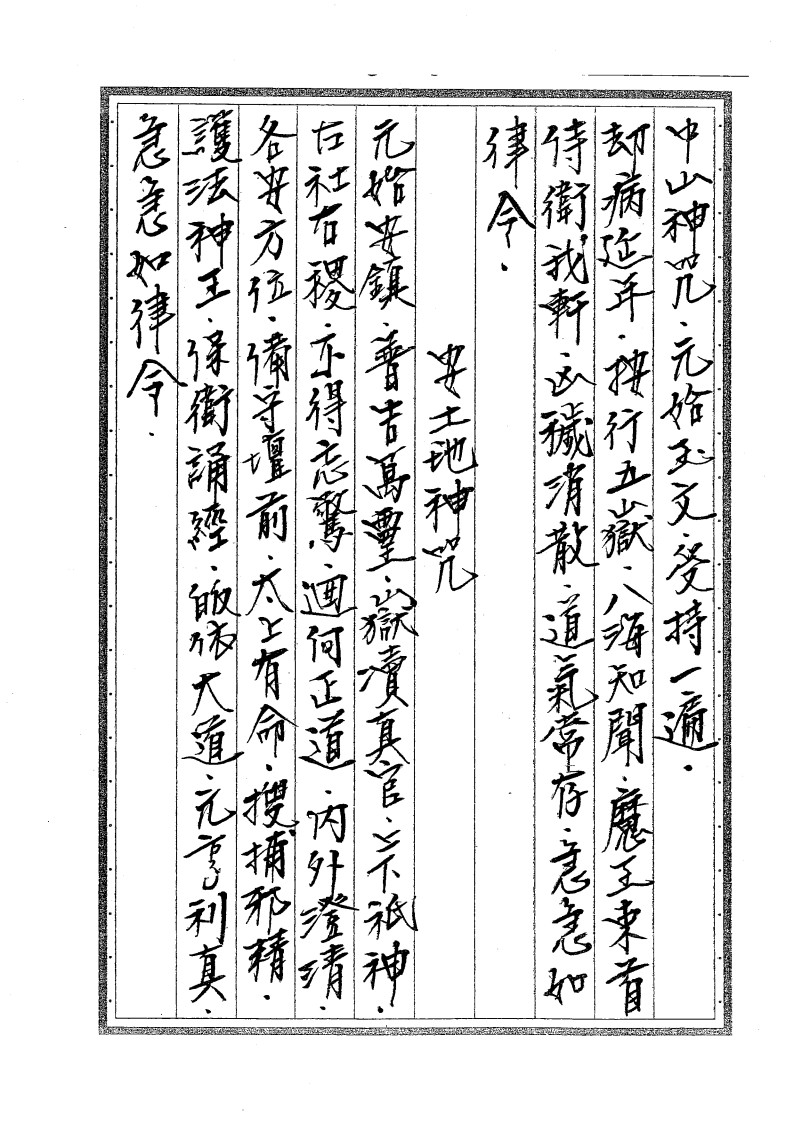 中山神咒．元始玉文．受持一遍．
却病延年．按行五嶽．八海知聞．魔王束首
侍衛我軒．凶穢消散．道氣常存．急急如
律令．
安土地神咒
元始安鎮．普告萬靈．嶽瀆真官．土下祇神．
左社右稷．不得忘驚．迴向正道．內外澄清．
各安方位．備守壇前．太上有命．搜捕邪精．
護法神王．保衛誦經．皈依大道．元亨利真．
急急如律令．